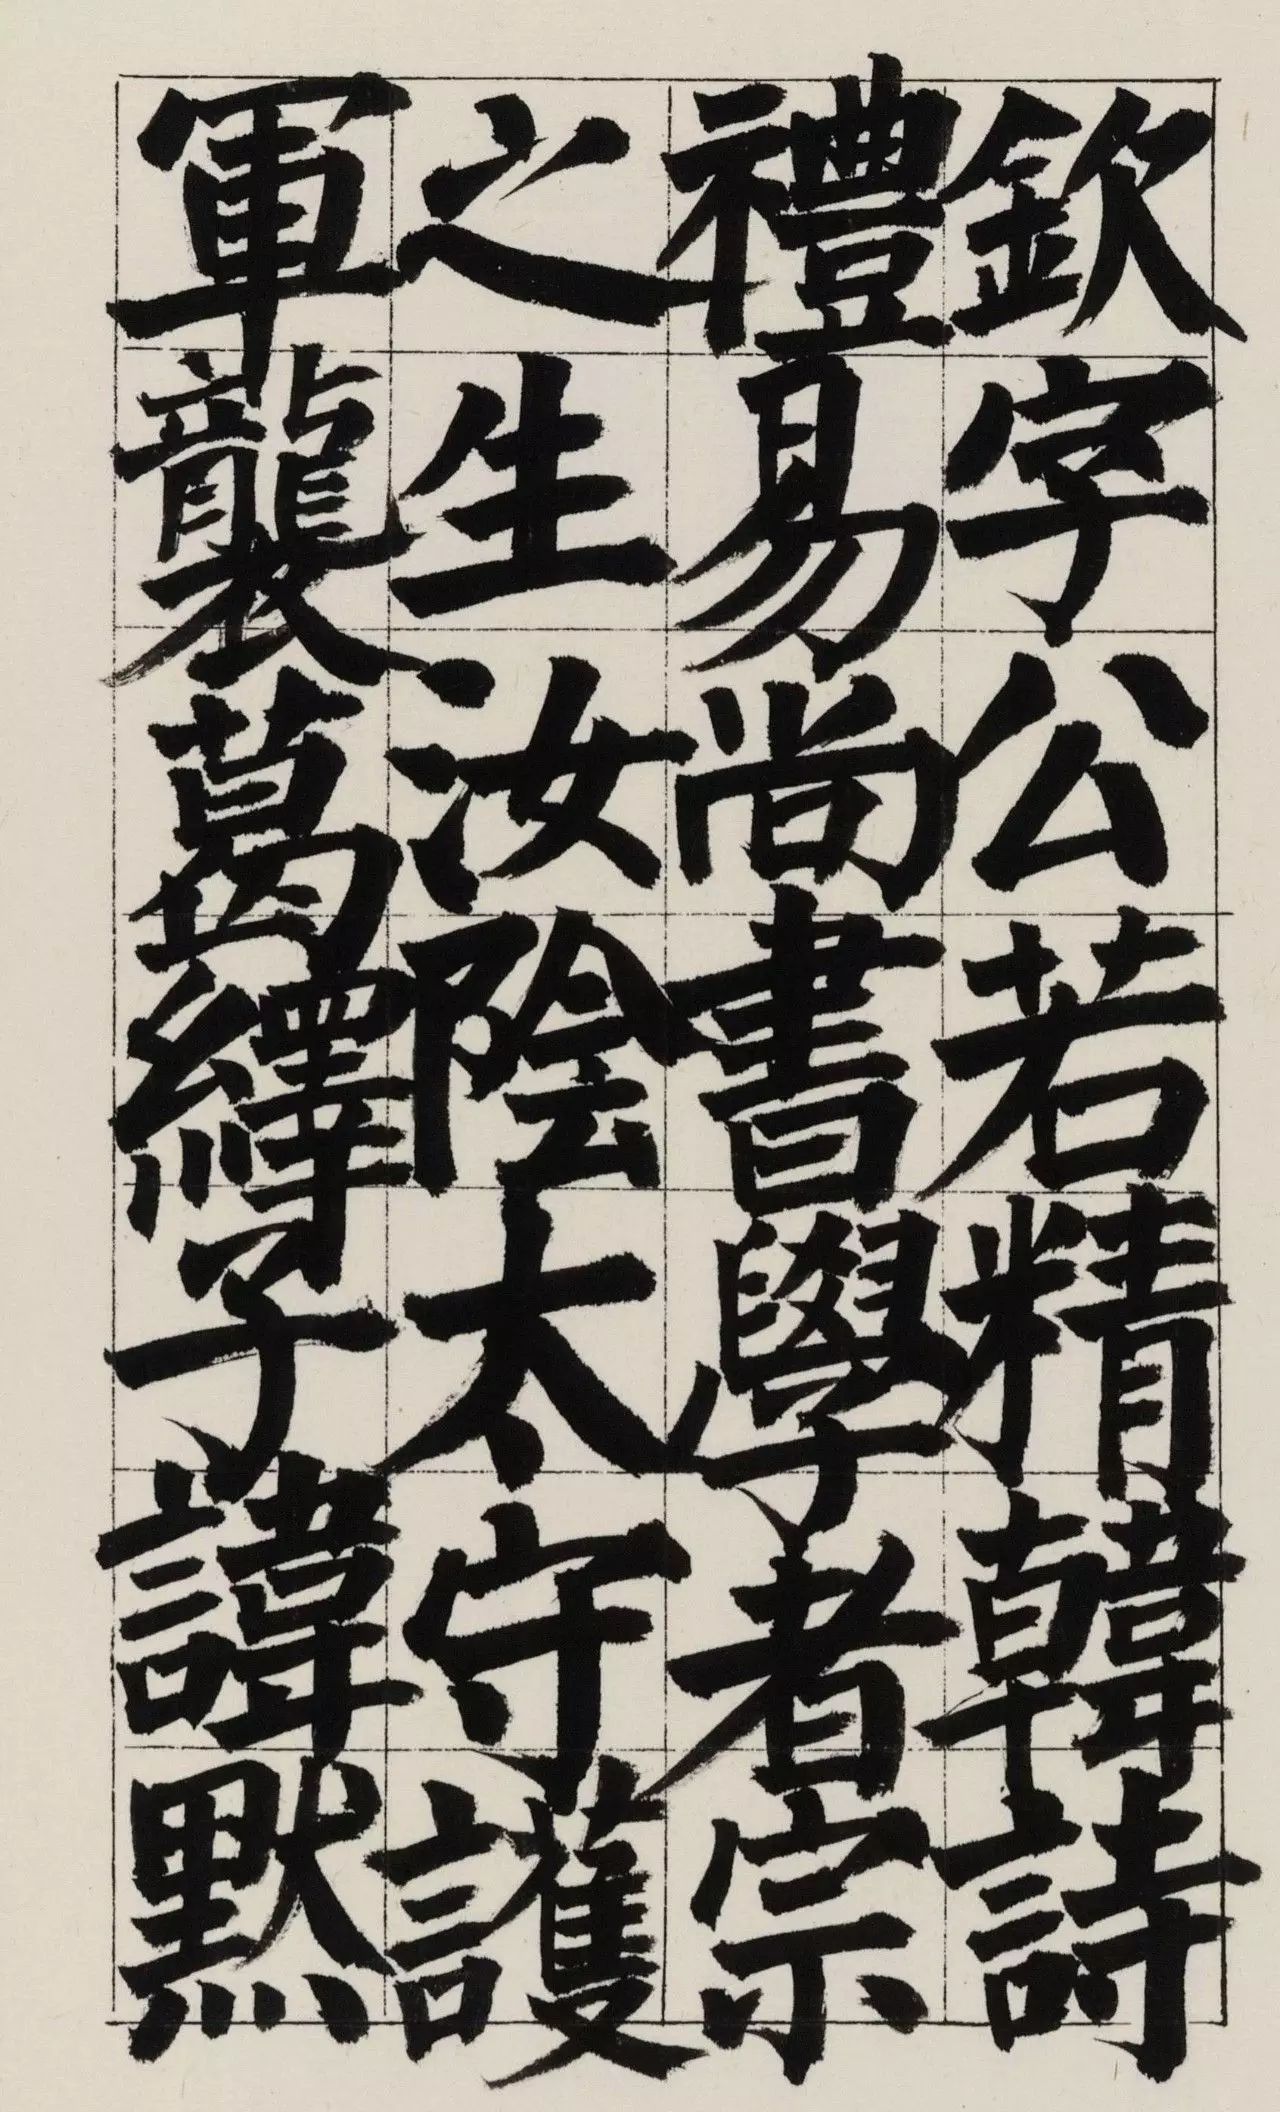 欽字公若精韓詩
禮易尚書學者宗
之生汝陰太守護
軍襲葛繹子諱默